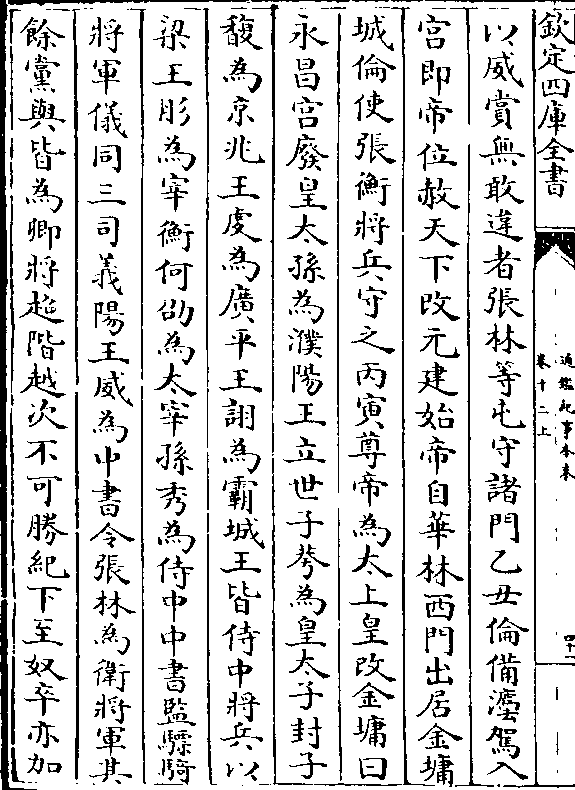 欽定四庫全書
通鑑紀事本末
卷十二上
四十一
以威賞無敢違者張林等屯守諸門乙丑倫備灋駕入
宮即帝位赦天下改元建始帝自華林西門出居金墉
城倫使張衡將兵守之丙寅尊帝為太上皇改金墉曰
永昌宮廢皇太孫為濮陽王立世子荂為皇太子封子
馥為京兆王虔為廣平王詡為霸城王皆侍中將兵以
梁王肜為宰衡何劭為太宰孫秀為侍中中書監驃騎
將軍儀同三司義陽王威為中書令張林為衛將軍其
餘黨與皆為卿將超階越次不可勝紀下至奴卒亦加